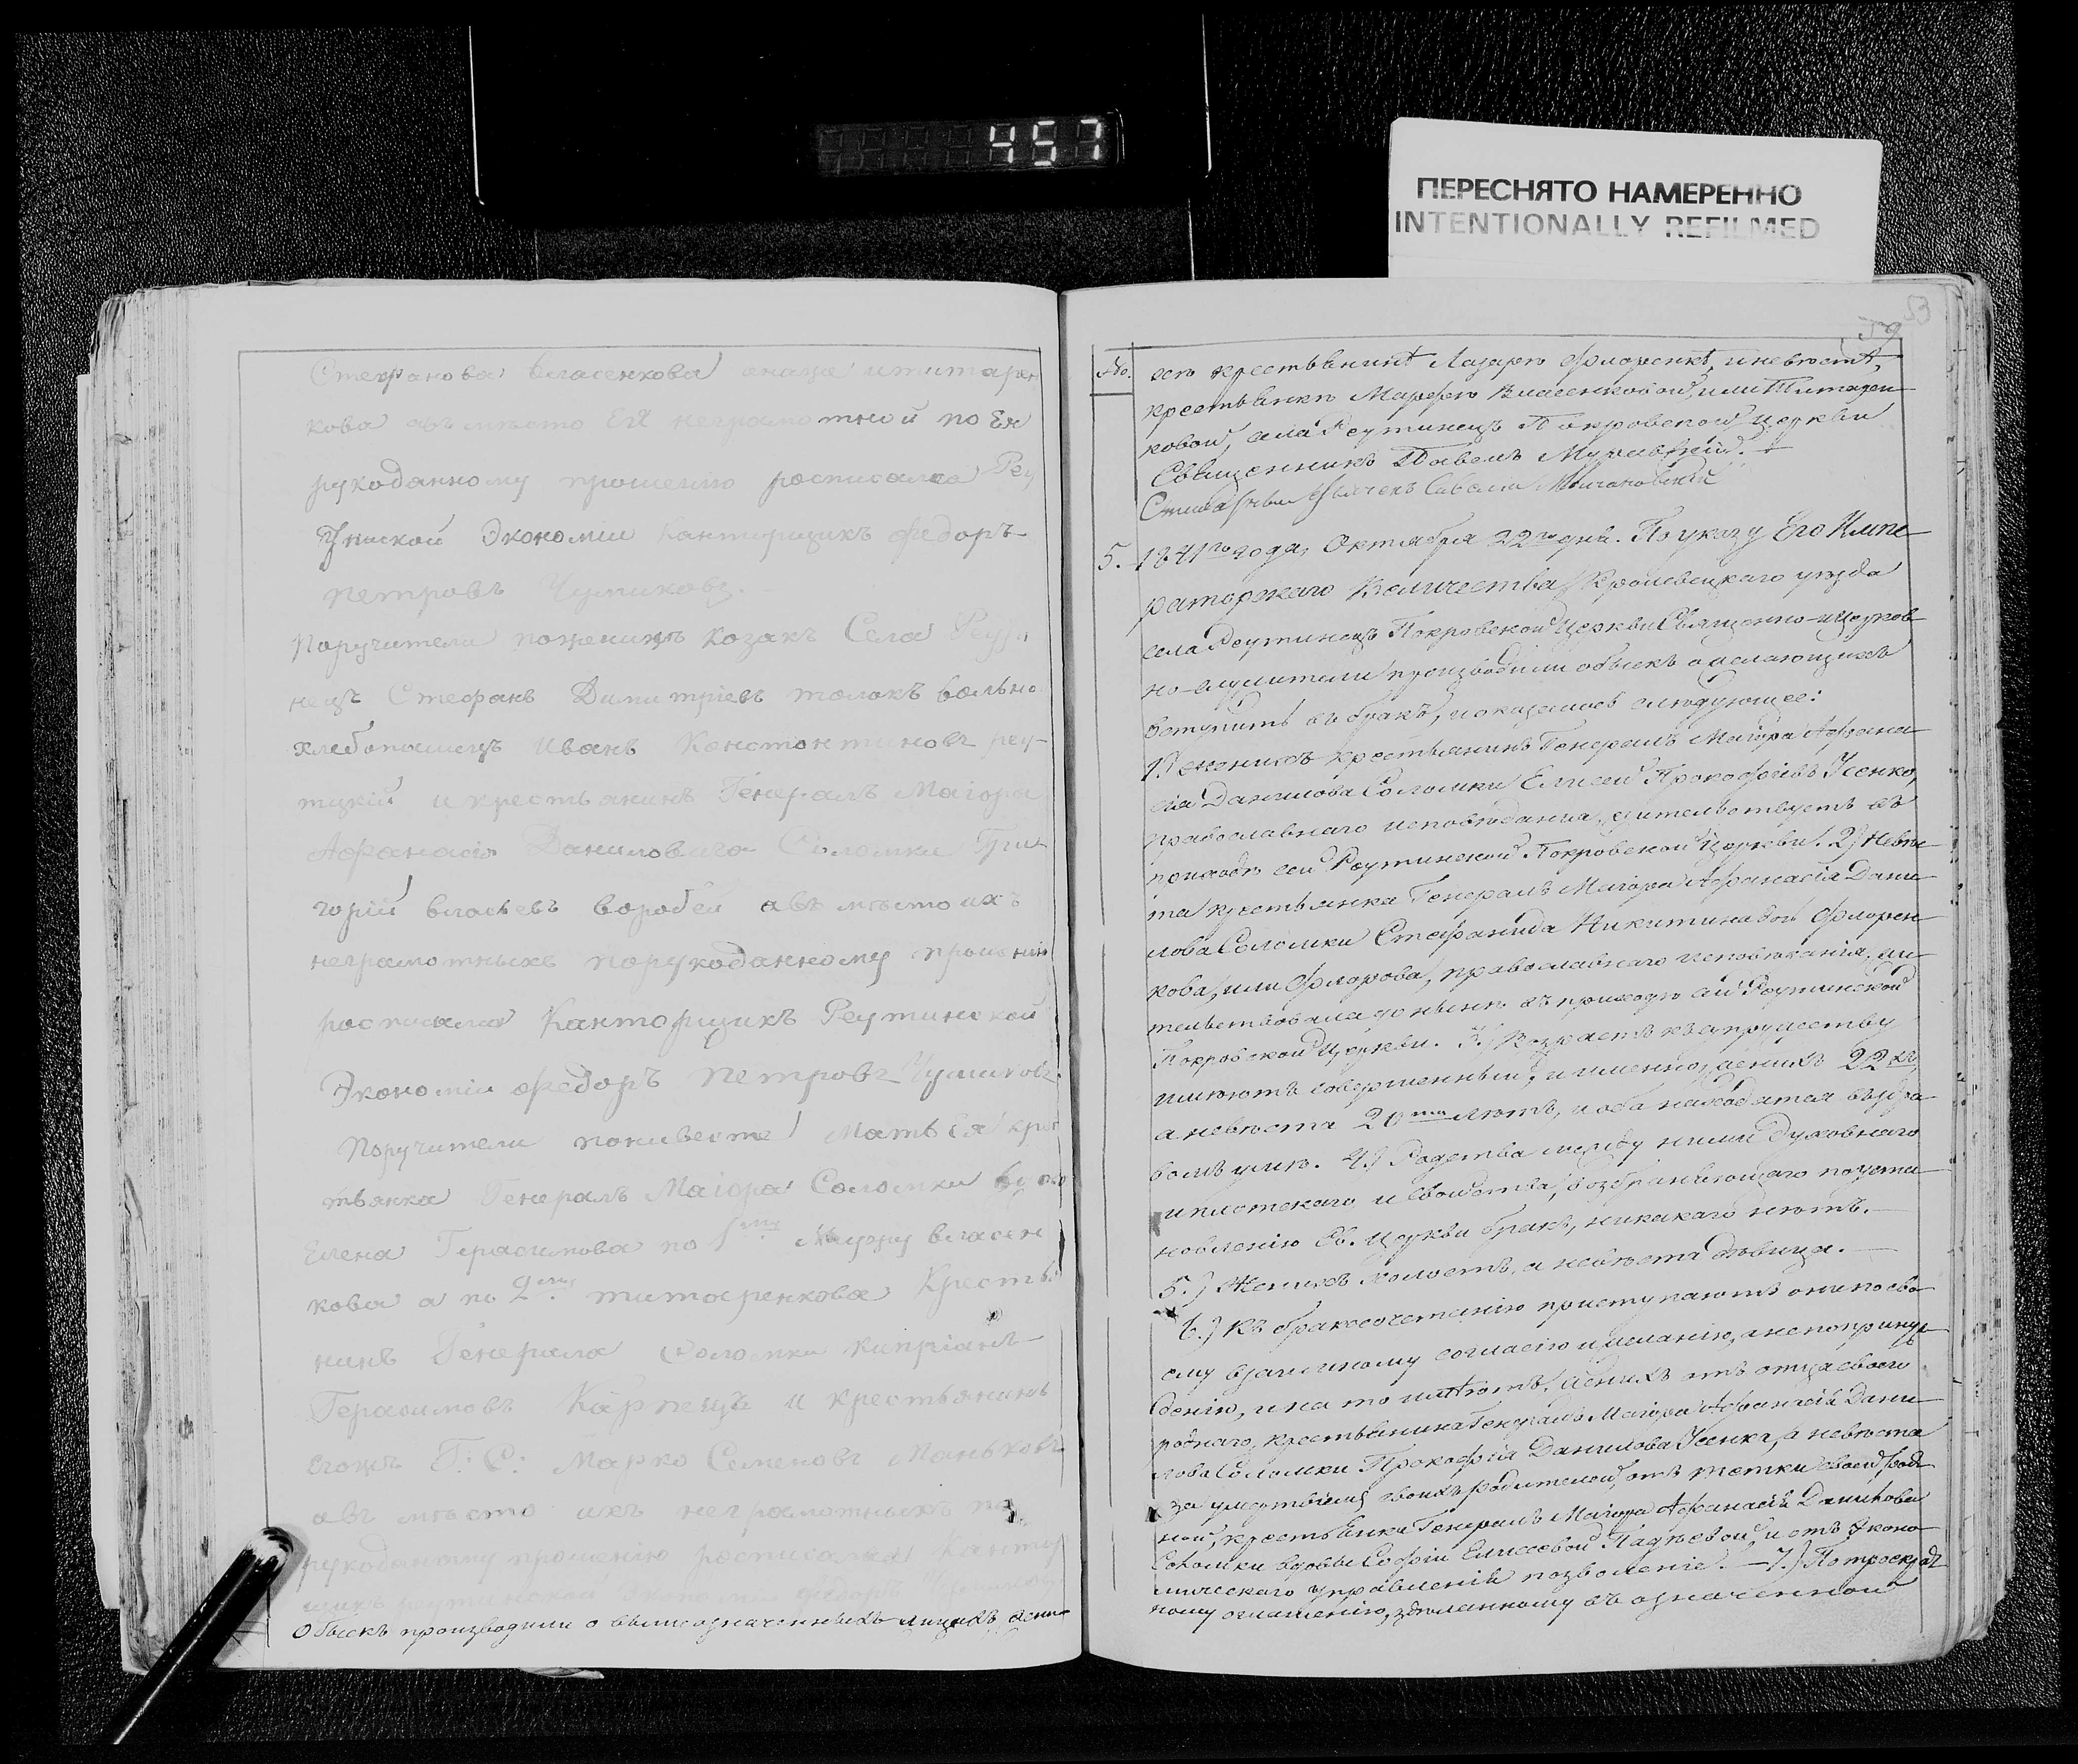 457
ПЕРЕСНЯТО НАМЕРЕННО
INTENTIONALLY REFILMED
53
Стефанова Власенкова
кова авъместо Ея неграмотной по Ея
рукоданному прошению росписался Реу
Экономіи Канторщикъ Федоръ
Петровъ Чумиковъ.
Поручители поженихѣ козакъ Села Реути
нецъ Стефанъ Димитріевъ толокъ вольно
хлебопашецъ Иванъ Констонтиновъ реу-
тцкій и крестьянинъ Генералъ Маіора
Афанасія Даниловича Соломки Гри
горій власьевъ воробей авъ место ихъ
неграмотныхъ порукоданному прошенію
росписался Канторщикъ Реутинской
Экономіи Федоръ Петровъ Чумиковъ.
Поручители поневесте Мать Ея крес
тьянка Генералъ Маіора Соломки
Елена Герасимова по 1му мужу власен
кова а по 2му титаренкова Крестья
нинъ Генерала Соломки Кипріанъ
Герасимовъ Карпецъ и крестьянинъ
егожъ Г: С: Марко Семеновъ Маньковъ
авъ место ихъ неграмотныхъ по
рукоданному прошенію росписался Кантор
щикъ реутинской экономіи Федоръ
Обыскъ производили о вышеозначенныхъ лицахъ, жени
№.
хѣ крестьянинѣ Лазарѣ Флоренкѣ, и невѣстѣ,
крестьянкѣ Марфѣ Власенковой, или Титарен
ковой, села Реутинецъ Покровской церкви
Священникъ Павелъ Муравскій.
5. 1841го года, Октября 22го дня. По указу Его Импе
раторскаго Величества, Кролевецкаго уѣзда
села Реутинецъ Покровской Церкви Священно-и Церков
но-служители производили обыскъ о желающихъ
вступить въ бракъ, и оказалось слѣдующее:
1.) Женихъ крестьянинъ Генералъ Маіора Афана
сія Данилова Соломки Елисей Прокофіевъ Усенко,
православнаго исповѣданія, жительствуетъ въ
приходѣ сей Реутинской Покровской Церкви. 2.) Невѣс
та крестьянка Генералъ Маіора Афанасія Дани
лова Соломки Стефанида Никитина Флорен
кова, или Флорова, православнаго исповѣданія, жи
тельствовала донынѣ въ приходѣ сей Реутинской
Покровской Церкви. 3.) Возрастъ къ супружеству
имѣютъ совершенный, и именно, женихъ 22хъ,
а невѣста 20ти лѣтъ, и оба находятся въ здра
вомъ умѣ. 4.) Родства между ними духовнаго
и плотскаго и свойства, возбраняющаго по уста
новленію Св. Церкви бракъ, никакаго нѣтъ.
5.) Женихъ холостъ, а невѣста дѣвица.
6.) Къ бракосочетанію приступаютъ они по сво
ему взаимному согласію и желанію, а не по принуж
денію, и на то имѣютъ, женихъ отъ отца своего
роднаго, крестьянина Генералъ Маіора Афанасія Дани
лова Соломки Прокофія Данилова Усенка, а невѣста
за умертвіемъ своихъ родителей, отъ тетки своей род
ной, крестьянки Генералъ Маіора Афанасія Данилова
Соломки вдовы Софіи Елисеевой и отъ Эконо
мическаго управленія позволеніе. — 7.) По троекрат
ному оглашенію, здѣланному въ означенной